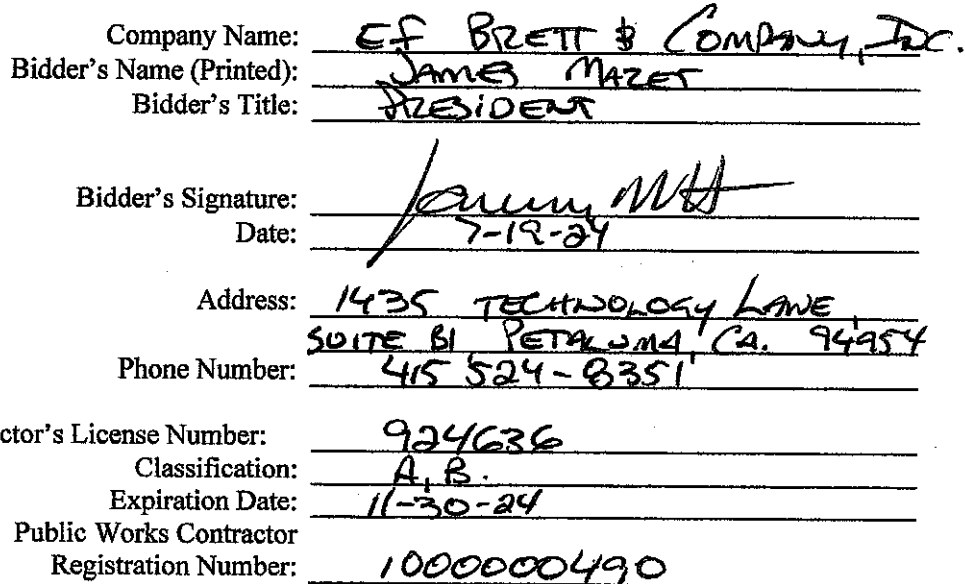 Company Name: EF BRETT & COMPANY, INC.
Bidder's Name (Printed): JAMES MAZET
Bidder's Title: PRESIDENT
Bidder's Signature:
Date: 7-19-24
Address: 1435 TECHNOLOGY LANE,
SUITE B1, PETALUMA, CA. 94954
Phone Number: 415 524-8351
ctor's License Number: 924636
Classification: A, B.
Expiration Date: 11-30-24
Public Works Contractor
Registration Number: 1000000490